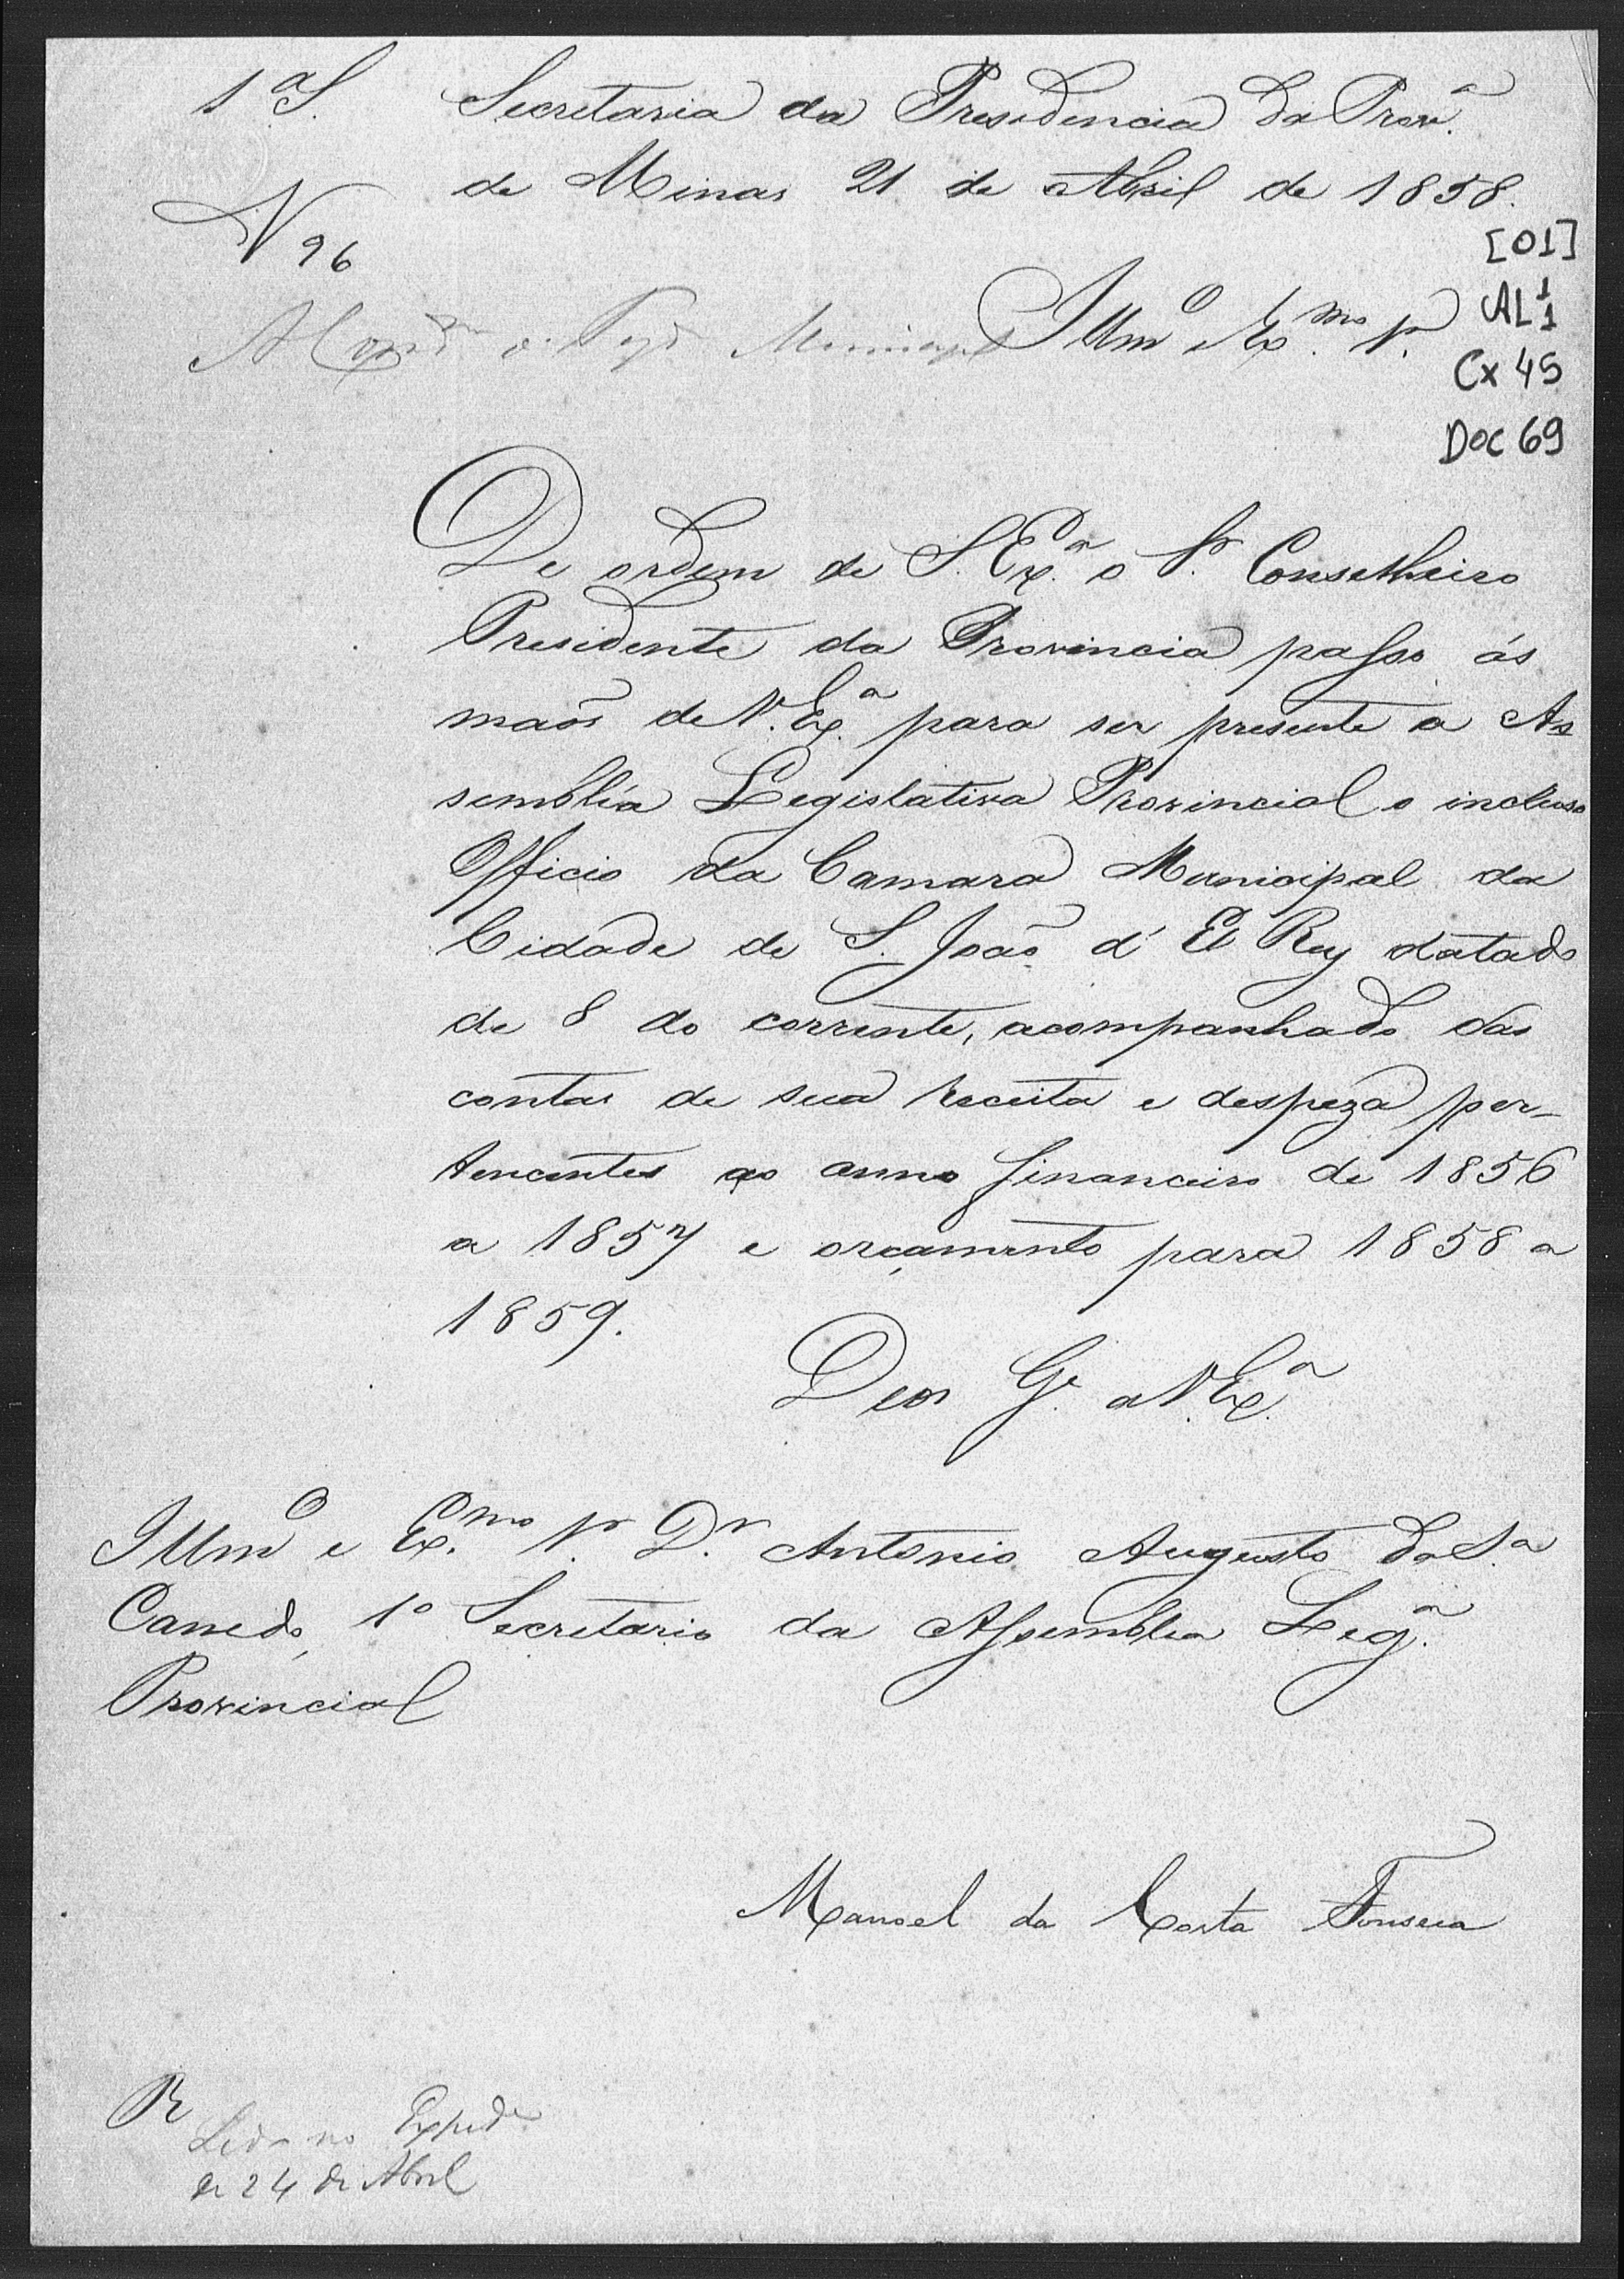 1ª S. Secretaria da Presidencia da Provª
de Minas 21 de Abril de 1858.
N 96
[01]
AL 1 1
Cx 45
Doc 69
Illmº e Exmº Sr.
De ordem de S. Exª o Sr. Conselheiro
Presidente da Provincia passo ás
maõs de V. Exª para ser presente a As
sembléa Legislativa Provincial o incluso
Officio da Camara Municipal da
Cidade de S. Joaõ d' El Rey datado
de 8 do corrente, acompanhado das
contas de sua receita e despeza per-
tencentes ao anno financeiro de 1856
a 1857 e orçamento para 1858 a
1859.
Deos Gᵉ a V. Exª
Illmº e Exmº Sr. Dr. Antonio Augusto da Sª
Canedo, 1º Secretario da Assemblea Legª
Provincial
Manoel da Costa Fonseca
R
Lido no Expedᵉ
de 24 de Abril